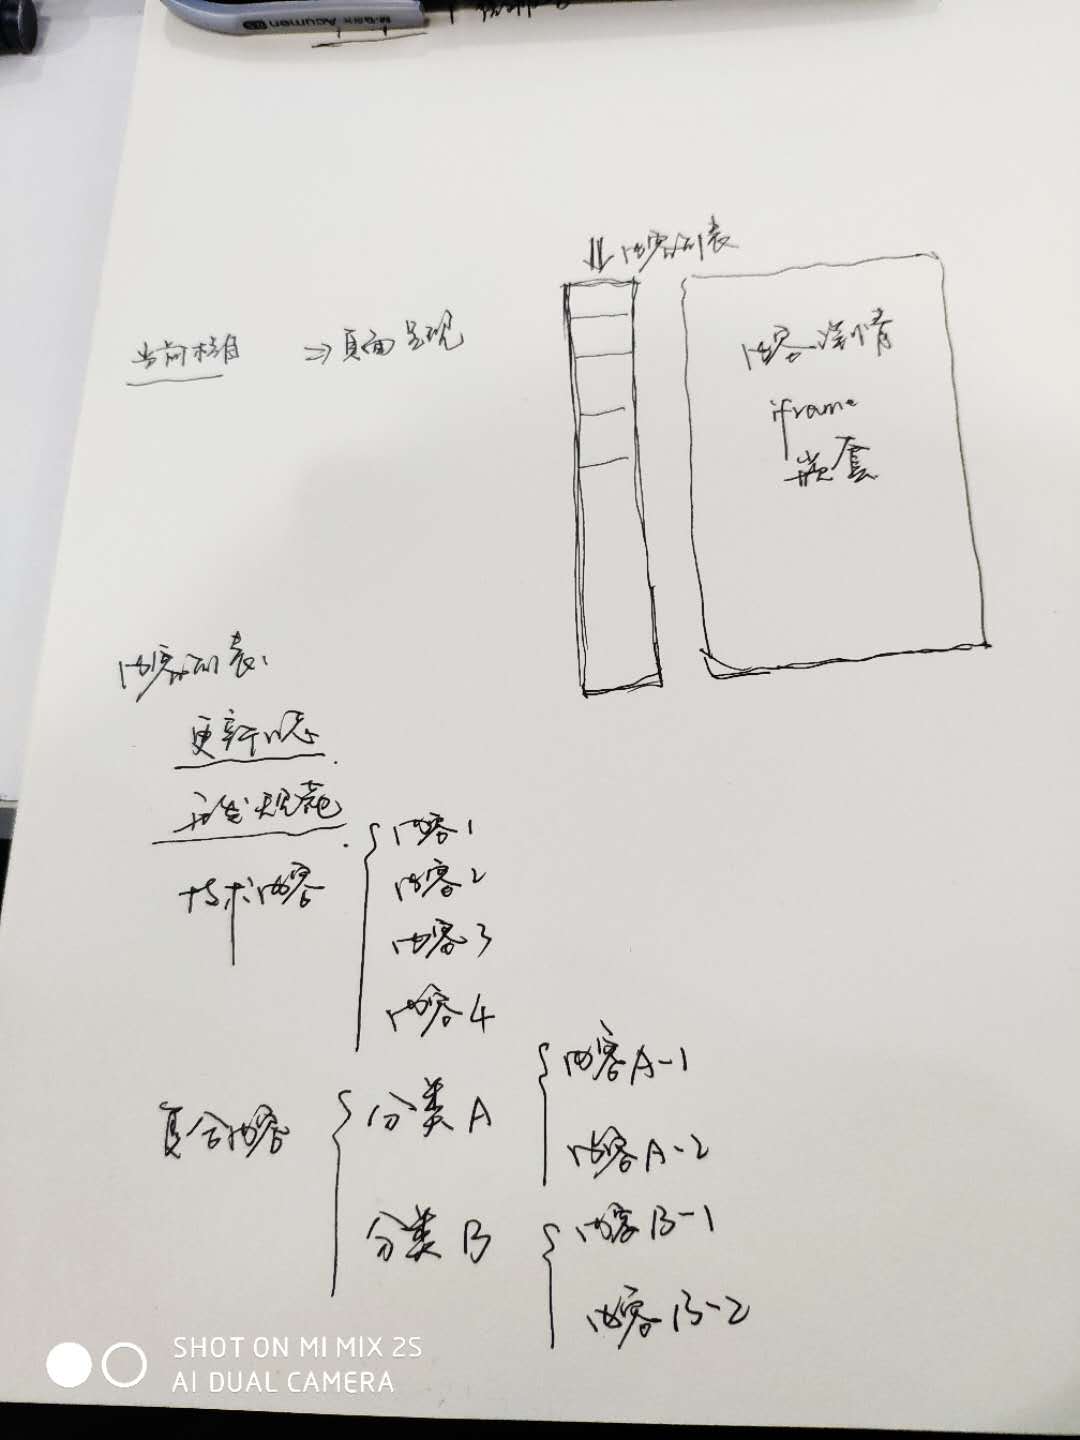 M&G Acumen
⇓ 内容列表
当前栏目 ⇒ 页面呈现
内容详情
iframe
嵌套
内容列表:
更新日志
开发规范
技术内容
内容1
内容2
内容3
内容4
复合内容
分类A
内容A-1
内容A-2
分类B
内容B-1
内容B-2
SHOT ON MI MIX 2S
AI DUAL CAMERA